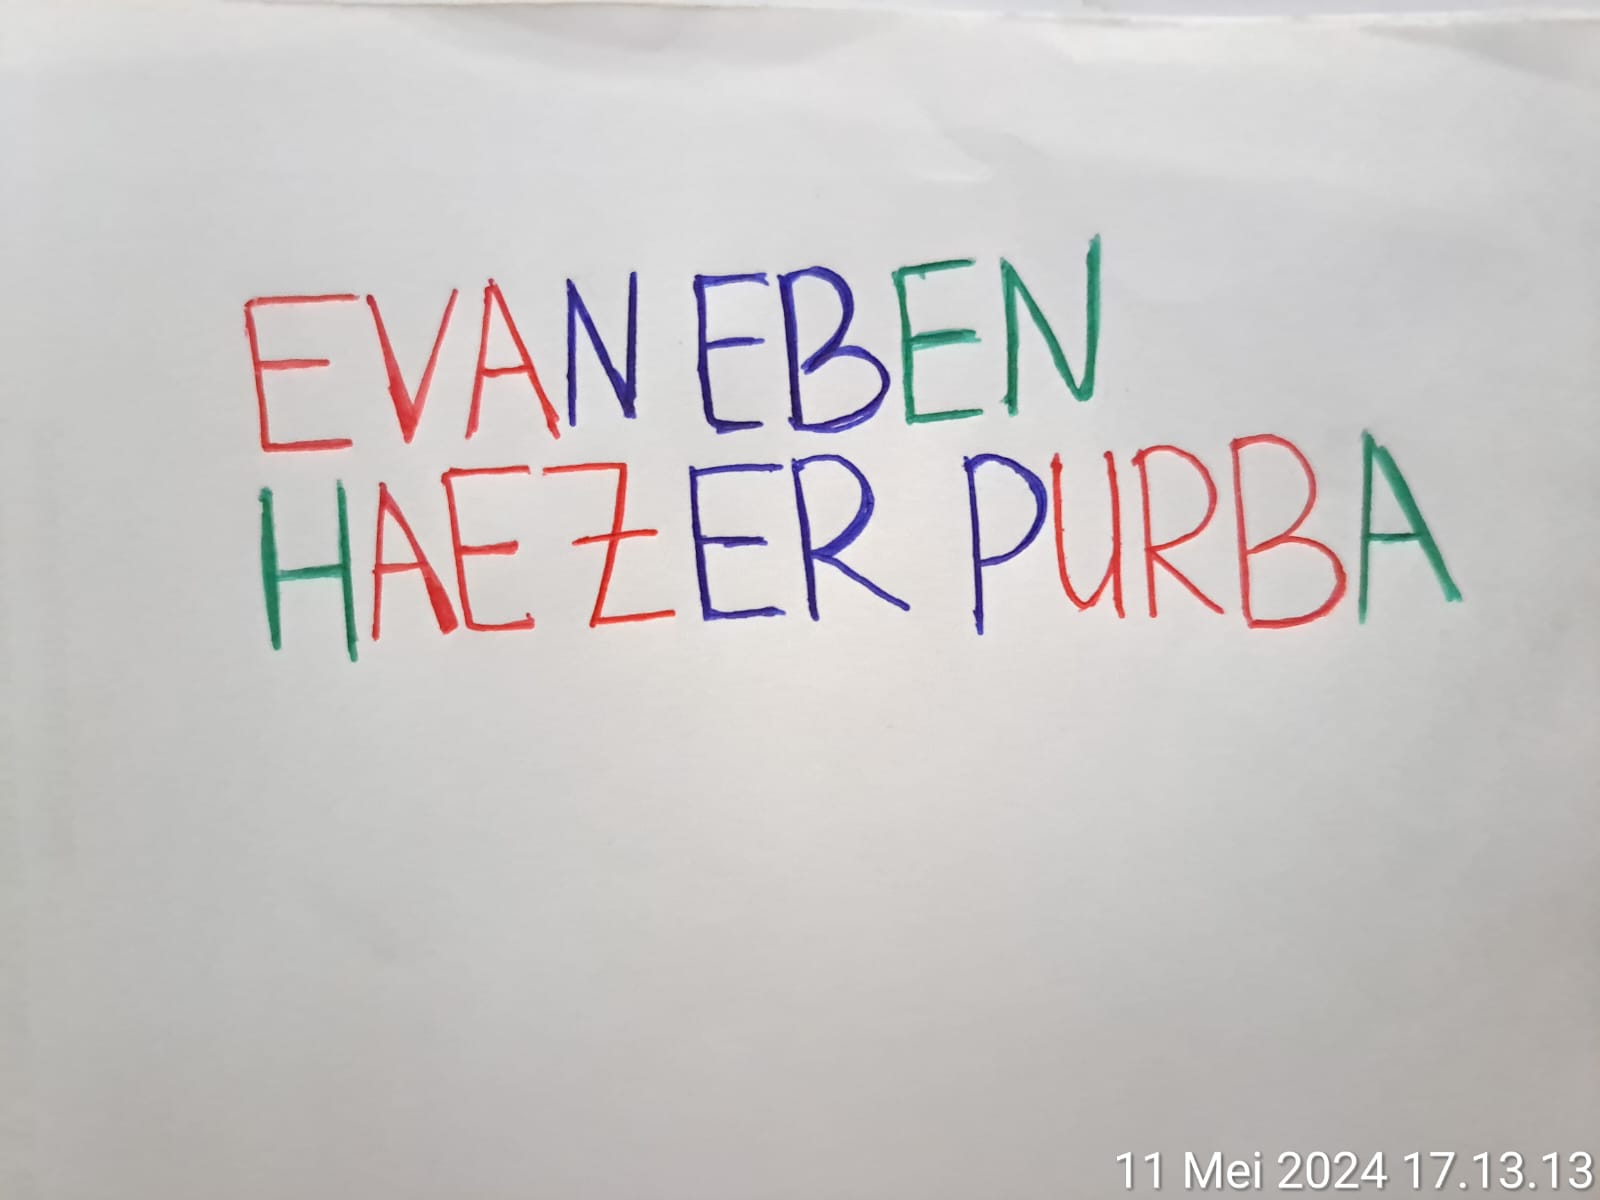 EVAN EBEN
HAEZER PURBA
11 Mei 2024 17.13.13